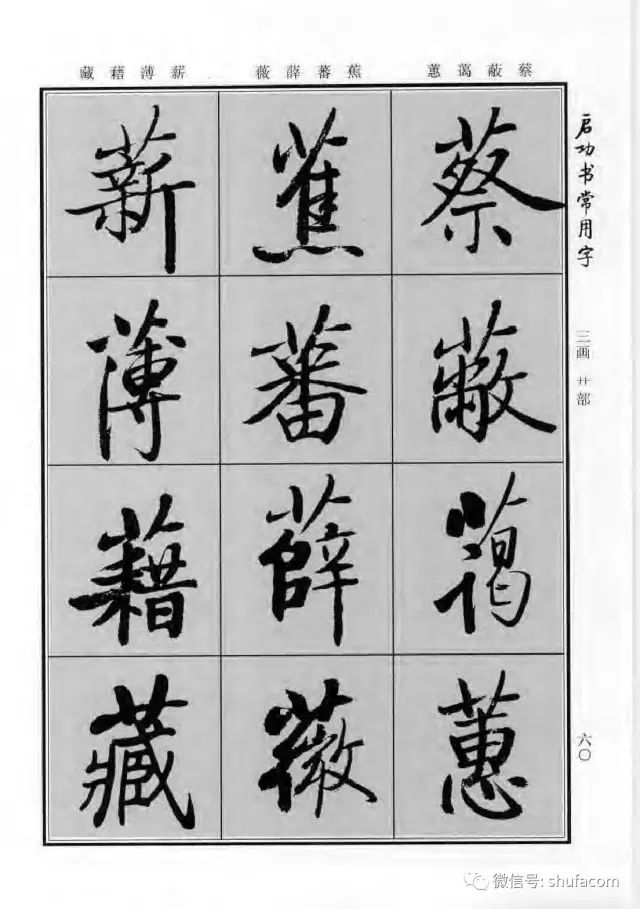 启功书常用字
三画 艹部
六〇
蔡蔽蔼蕙
蕉蕃薛薇
薪薄藉藏
蔡
蔽
蔼
蕙
蕉
蕃
薛
薇
薪
薄
藉
藏
微信号: shufacom